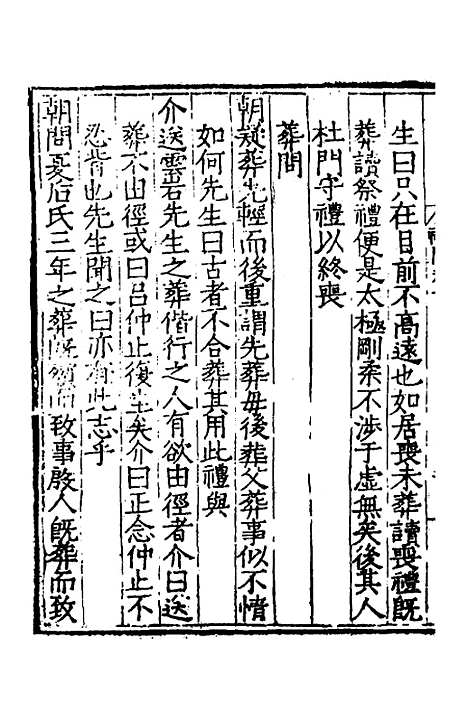 生曰只在目前不高遠也如居喪未葬讀喪禮旣
葬讀祭禮便是太極剛柔不涉于虛無矣後其人
杜門守禮以終喪
葬問
朝疑葬先輕而後重謂先葬母後葬父葬事似不情
如何先生曰古者不合葬其用此禮與
介送雲石先生之葬偕行之人有欲由徑者介曰送
葬不由徑或曰吕仲止復生矣介曰正念仲止不
忍背也先生聞之曰亦有此志乎
朝問夏后氏三年之葬旣殯而致事殷人旣葬而致